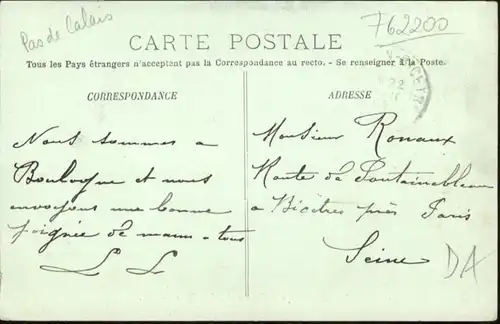 Pas de Calais
762200
CARTE POSTALE
Tous les Pays étrangers n'acceptent pas la Correspondance au recto. - Se renseigner à la Poste.
CORRESPONDANCE
Nous sommes a
Boulogne et nous
envoyons une bonne
poignée de main a tous
L L
ADRESSE
Monsieur Ronaux
Route de Fontainebleau
a Bicêtre près Paris
Seine
DA